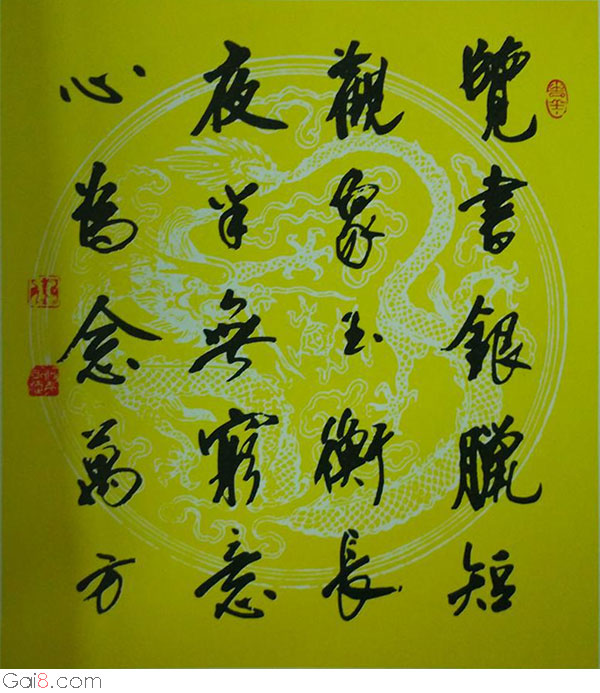 覽書銀臘短
觀象玉衡長
夜半無窮意
心為念萬方
Gai8.com